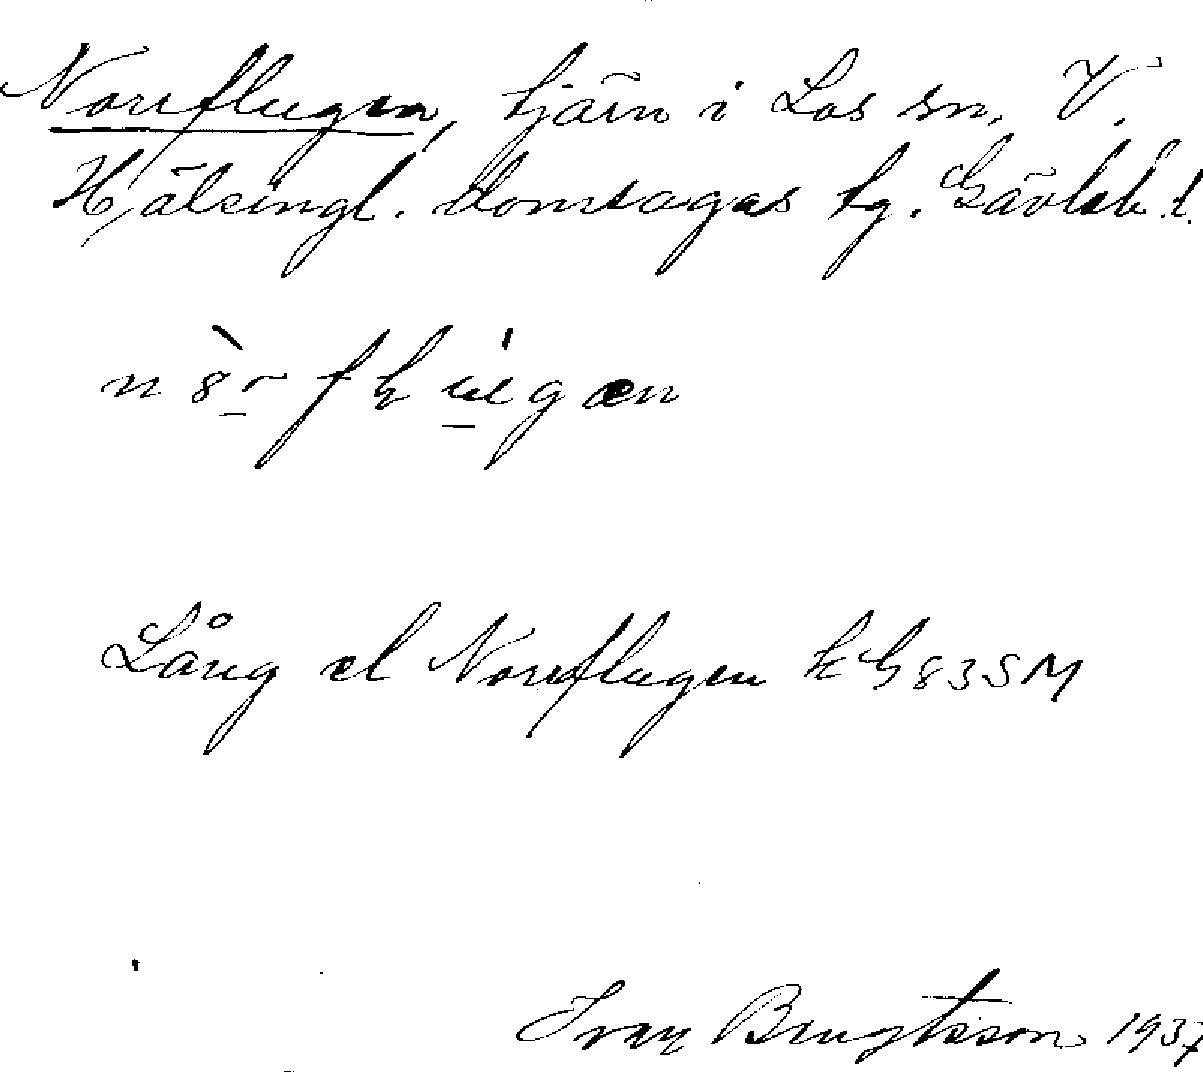 Norrflugen, tjärn i Los sn. V.
Hälsingl. domsagas tg. Gävleb. l.
Lång el Norrflugen kG83SM
Ivan Bengtsson 1937